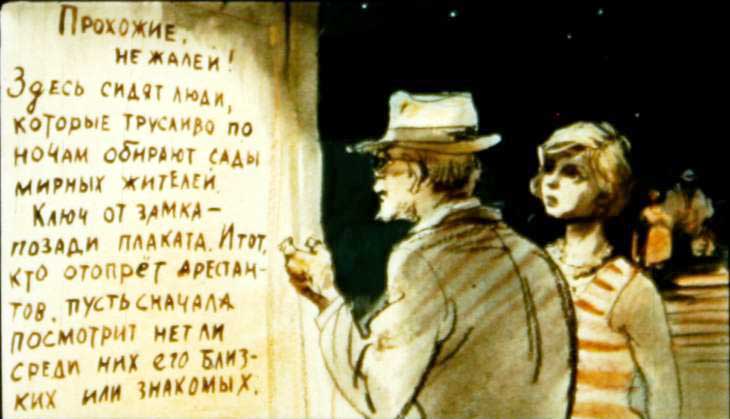 Прохожие,
не жалей!
Здесь сидят люди,
которые трусливо по
ночам обирают сады
мирных жителей.
Ключ от замка –
позади плаката. И тот,
кто отопрёт арестан-
тов, пусть сначала
посмотрит нет ли
среди них его близ-
ких или знакомых.